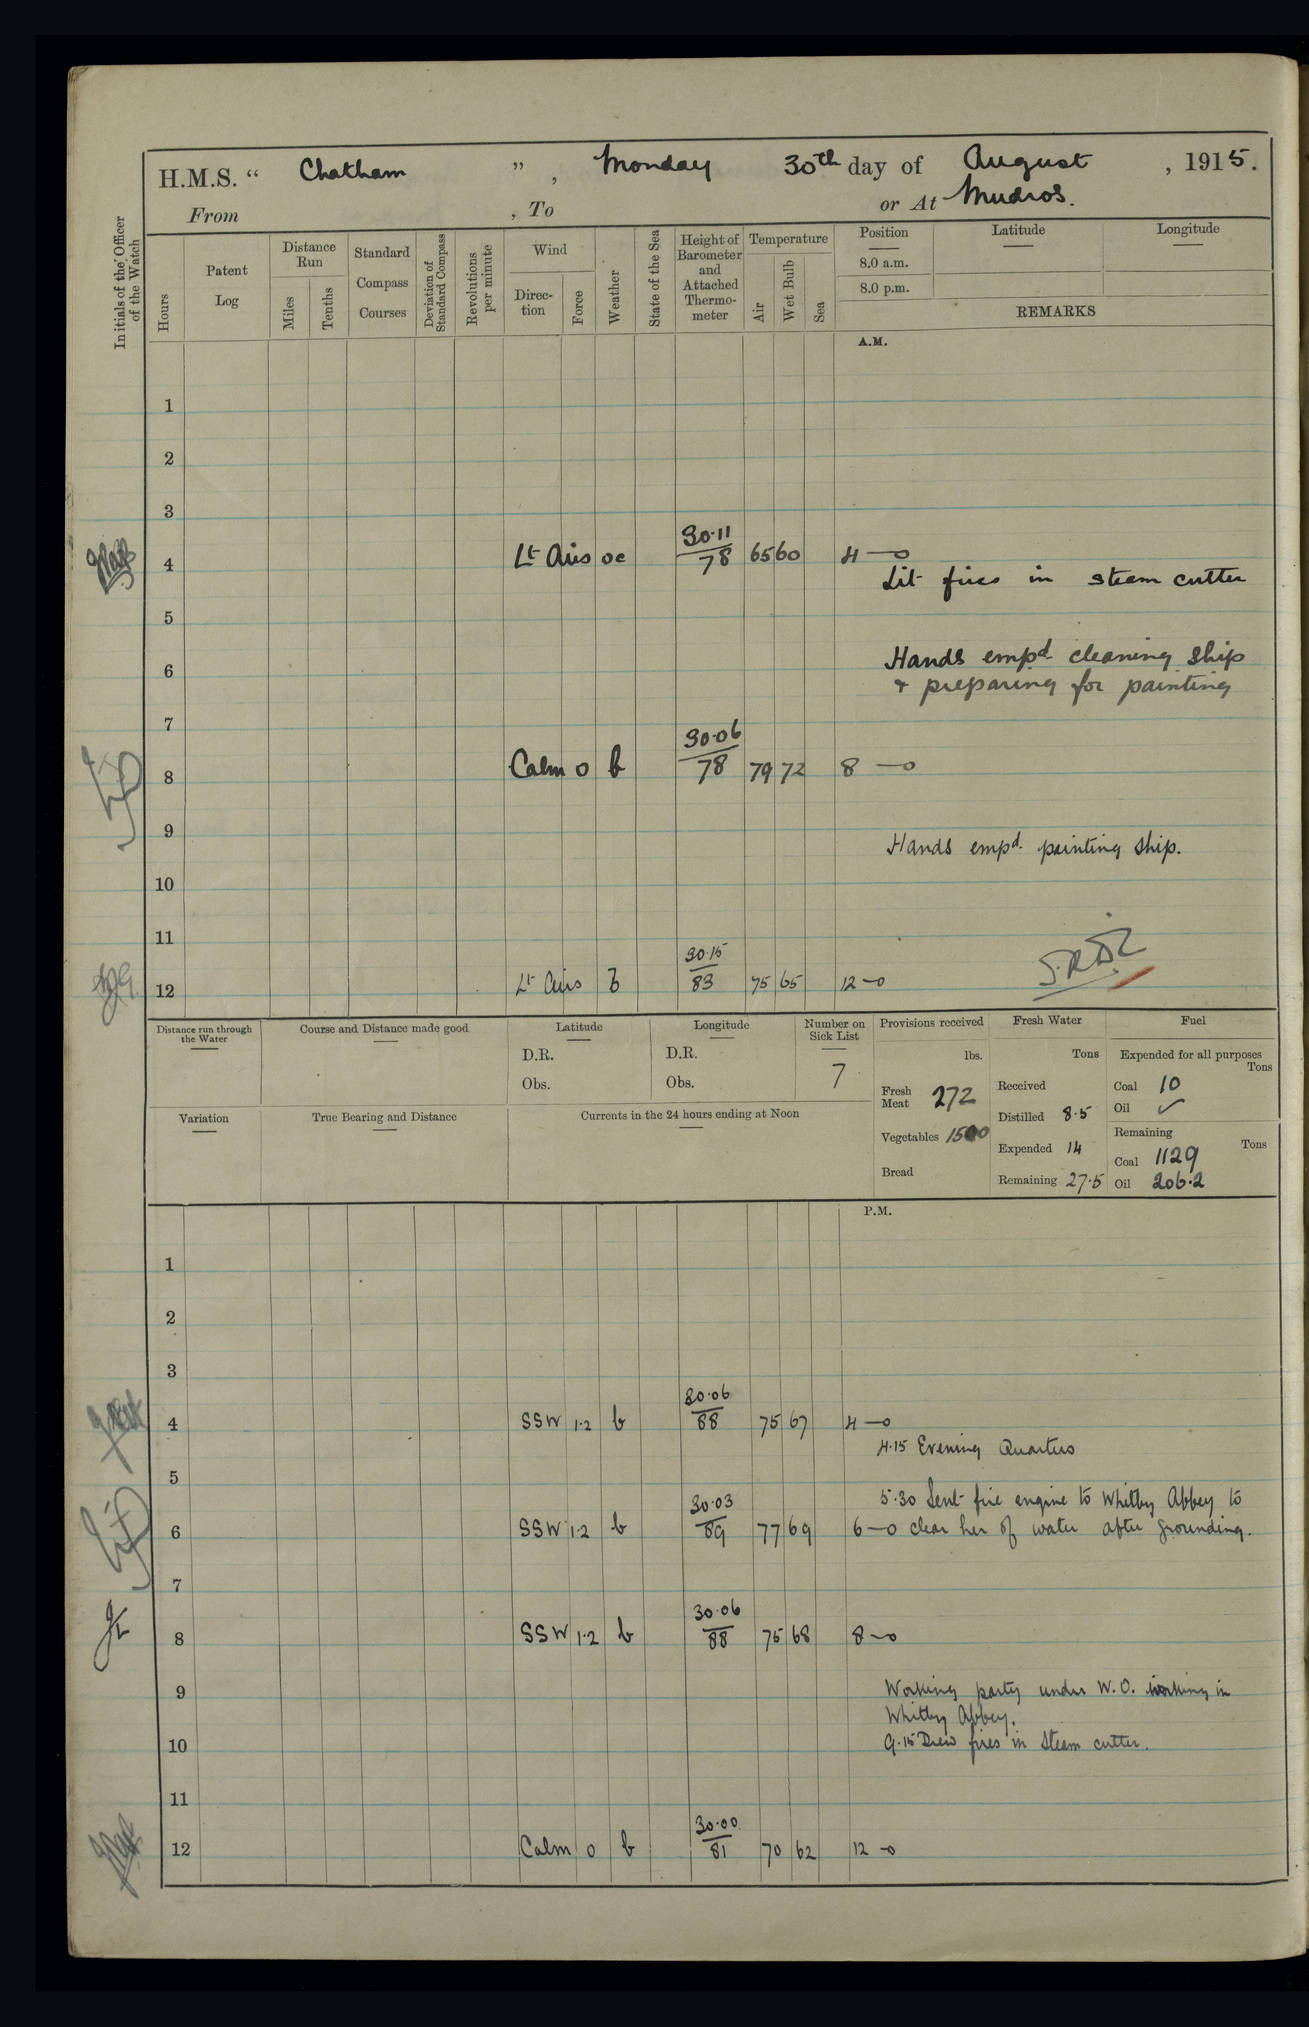 H.M.S. “ Chatham ” , Monday 30th day of August , 1915.
From , To or At Mudros.
Initials of the Officer of the Watch
Hours
Patent Log
Distance Run
Miles
Tenths
Standard Compass Courses
Deviation of Standard Compass
Revolutions per minute
Wind
Direction
Force
Weather
State of the Sea
Height of Barometer and Attached Thermometer
Temperature
Air
Wet Bulb
Sea
Position
8.0 a.m.
8.0 p.m.
Latitude
Longitude
REMARKS
A.M.
1
2
3
4 Lt Airs oc 30·11/78 65 60 4—o
Lit fires in steam cutter
5
Hands empd cleaning ship
6
& preparing for painting
7
8 Calm 0 b 30·06/78 79 72 8—o
9
Hands empd. painting ship.
10
11
12 Lt Airs b 30·15/83 75 65 12—o
Distance run through the Water
Course and Distance made good
Latitude
D.R.
Obs.
Longitude
D.R.
Obs.
Number on Sick List
7
Provisions received
lbs.
Fresh Meat 272
Vegetables 1500
Bread
Fresh Water
Tons
Received
Distilled 8·5
Expended 14
Remaining 27·5
Fuel
Expended for all purposes
Tons
Coal 10
Oil ✓
Remaining
Tons
Coal 1129
Oil 206·2
Variation
True Bearing and Distance
Currents in the 24 hours ending at Noon
P.M.
1
2
3
4 SSW 1·2 b 30·06/88 75 67 4—o
4·15 Evening Quarters
5
5·30 Sent fire engine to Whitby Abbey to
6 SSW 1·2 b 30·03/89 77 69 6—o clear her of water after grounding.
7
8 SSW 1·2 b 30·06/88 75 68 8—o
9
Working party under W.O. working in
Whitby Abbey.
10
9·15 Drew fires in Steam cutter.
11
12 Calm 0 b 30·00/81 70 62 12—o